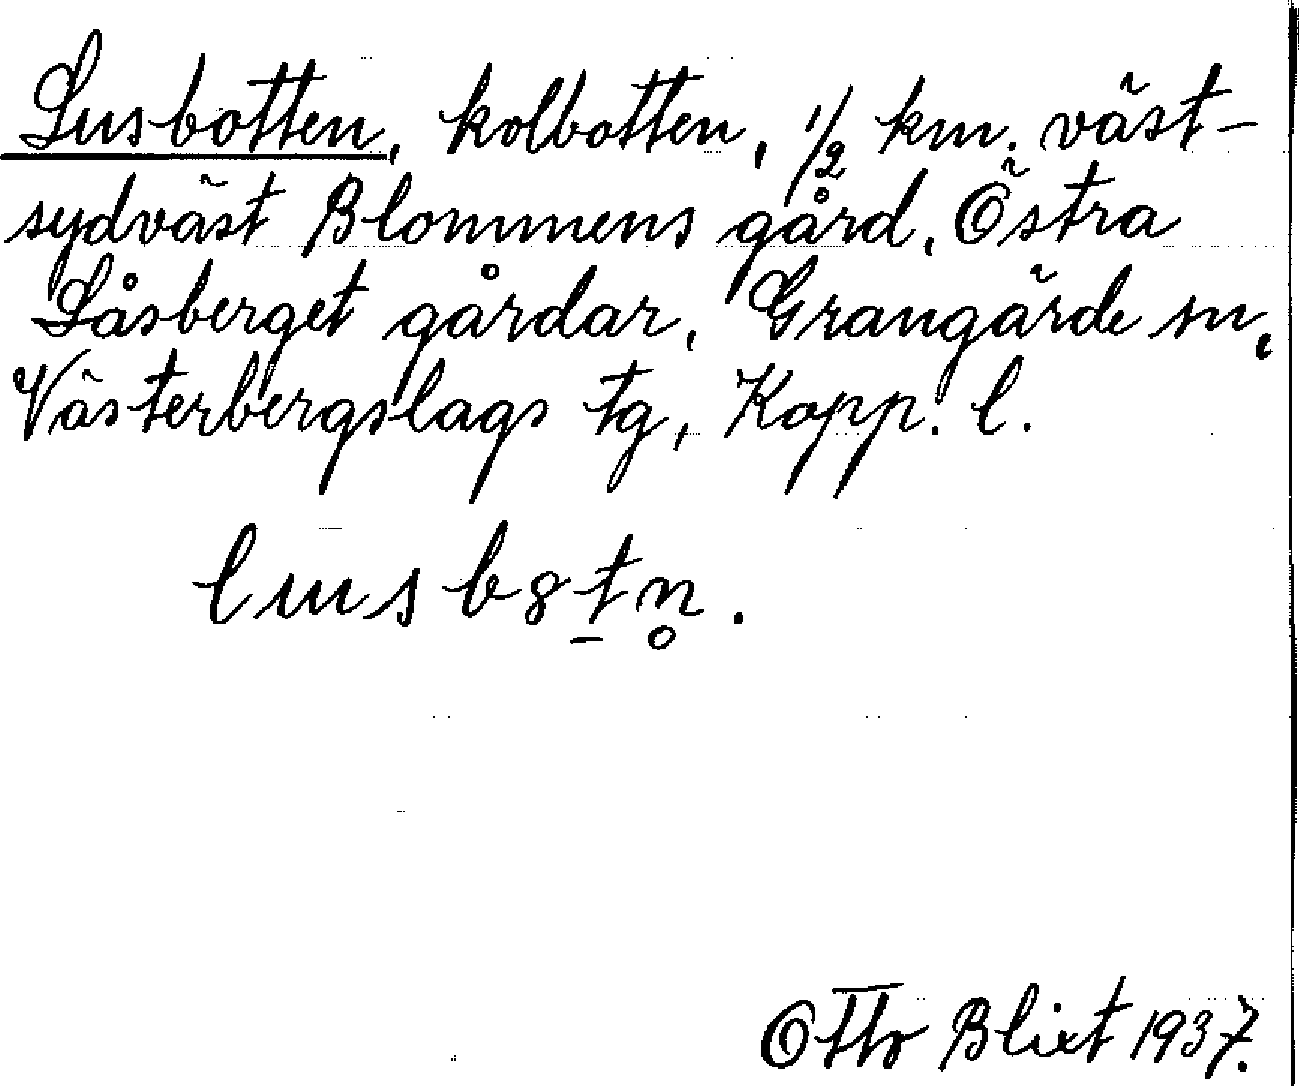 Lusbotten, kolbotten, 1/2 km. väst-
sydväst Blommens gård, Östra
Låsberget gårdar, Grangärde sn,
Västerbergslags tg, Kopp. l.
lusb8t̠n̥.
Otto Blixt 1937.